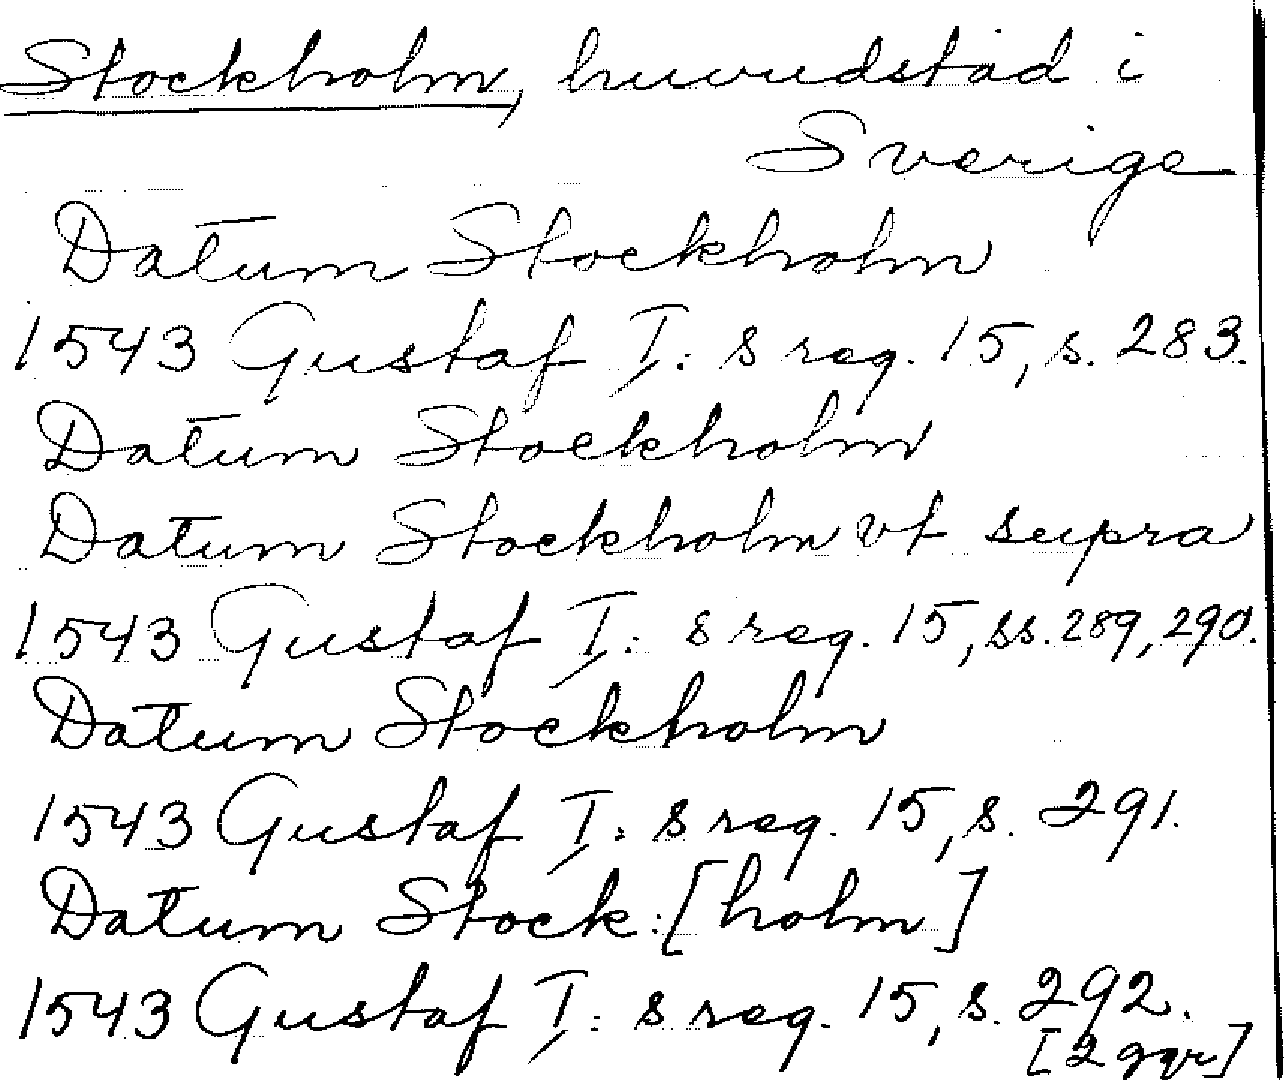 Stockholm, huvudstad i
Sverige
Datum Stockholm
1543 Gustaf I: s reg. 15, s. 283.
Datum Stockholm
Datum Stockholm vt supra
1543 Gustaf I: s reg. 15, ss. 289, 290.
Datum Stockholm
1543 Gustaf I: s reg. 15, s. 291.
Datum Stock: [holm]
1543 Gustaf I: s reg. 15, s. 292.
[2 ggr]